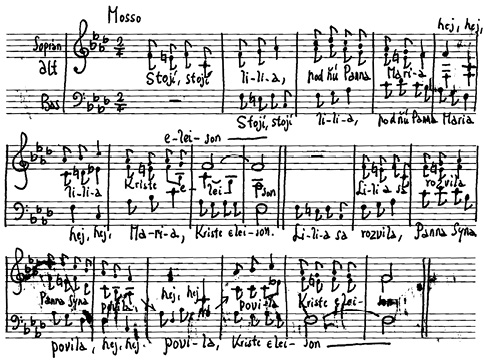 Mosso
hej, hej,
Soprán
Alt
Stojí, stojí li-li-a, pod ňú Panna Mari-a
Bas
Stojí, stojí li-li-a, pod ňú Panna Maria
e-lei-son
li-li-a Kriste e-lei-son Li-li-a sa rozvila
hej, hej, Ma-ri-a, Kriste elei-son. Li-li-a sa rozvila, Panna Syna
hej, hej
Panna Syna povila, povi-la Kriste elei-son.
povila, hej, hej. povi-la, Kriste elei-son